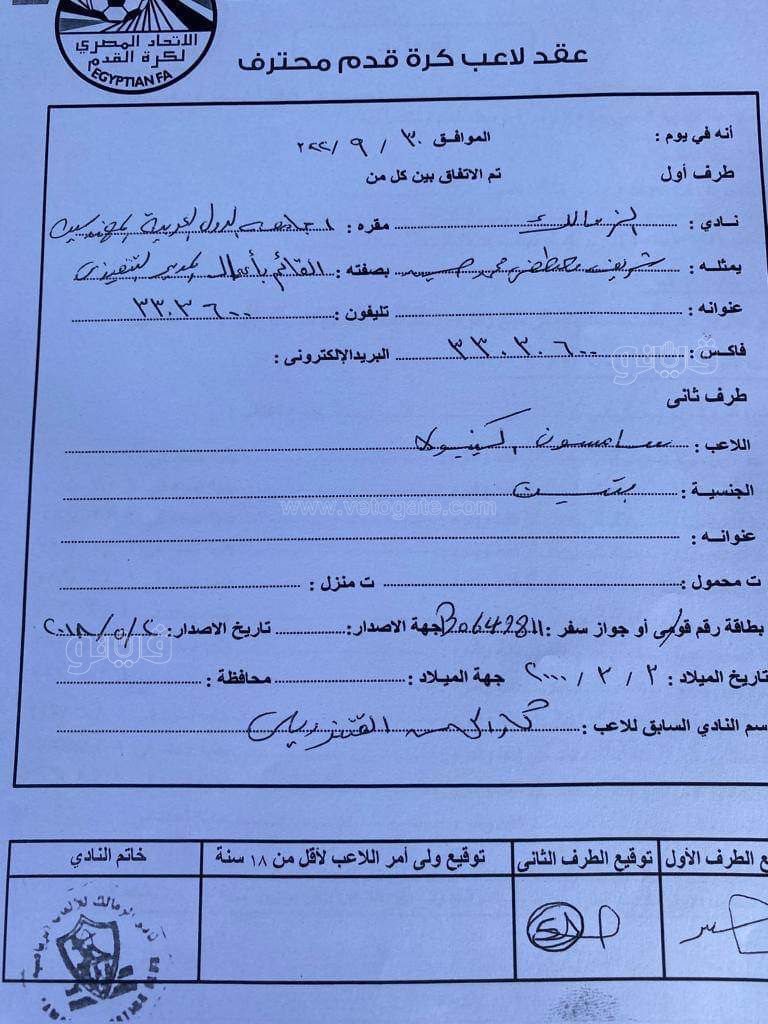 الاتحاد المصري
لكرة القدم
EGYPTIAN FA
عقد لاعب كرة قدم محترف
أنه في يوم : الموافق ٣٠ / ٩ / ٢٠٢٢
طرف أول تم الاتفاق بين كل من
نادي : الزمالك مقره : ١ جامعة الدول العربية المهندسين
يمثله : شريف مصطفى محمد حسين بصفته : القائم بأعمال المدير التنفيذى
عنوانه : تليفون : ٣٣٠٣٦٠٠
فاكس : ٣٣٠٢٠٦٠٠ البريد الإلكترونى :
ڤيتو
طرف ثانى
اللاعب : سامسون اكينيولا
الجنسية : بنين
www.vetogate.com
عنوانه :
ت محمول : ت منزل :
بطاقة رقم قومى أو جواز سفر : B0642811 جهة الاصدار : تاريخ الاصدار : ٢٠١٨/٥/٢
ڤيتو
تاريخ الميلاد : ٢ / ٣ / ٢٠٠٠ جهة الميلاد : محافظة :
سم النادي السابق للاعب :
ع الطرف الأول توقيع الطرف الثانى توقيع ولى أمر اللاعب لأقل من ١٨ سنة خاتم النادي
نادي الزمالك للألعاب الرياضية